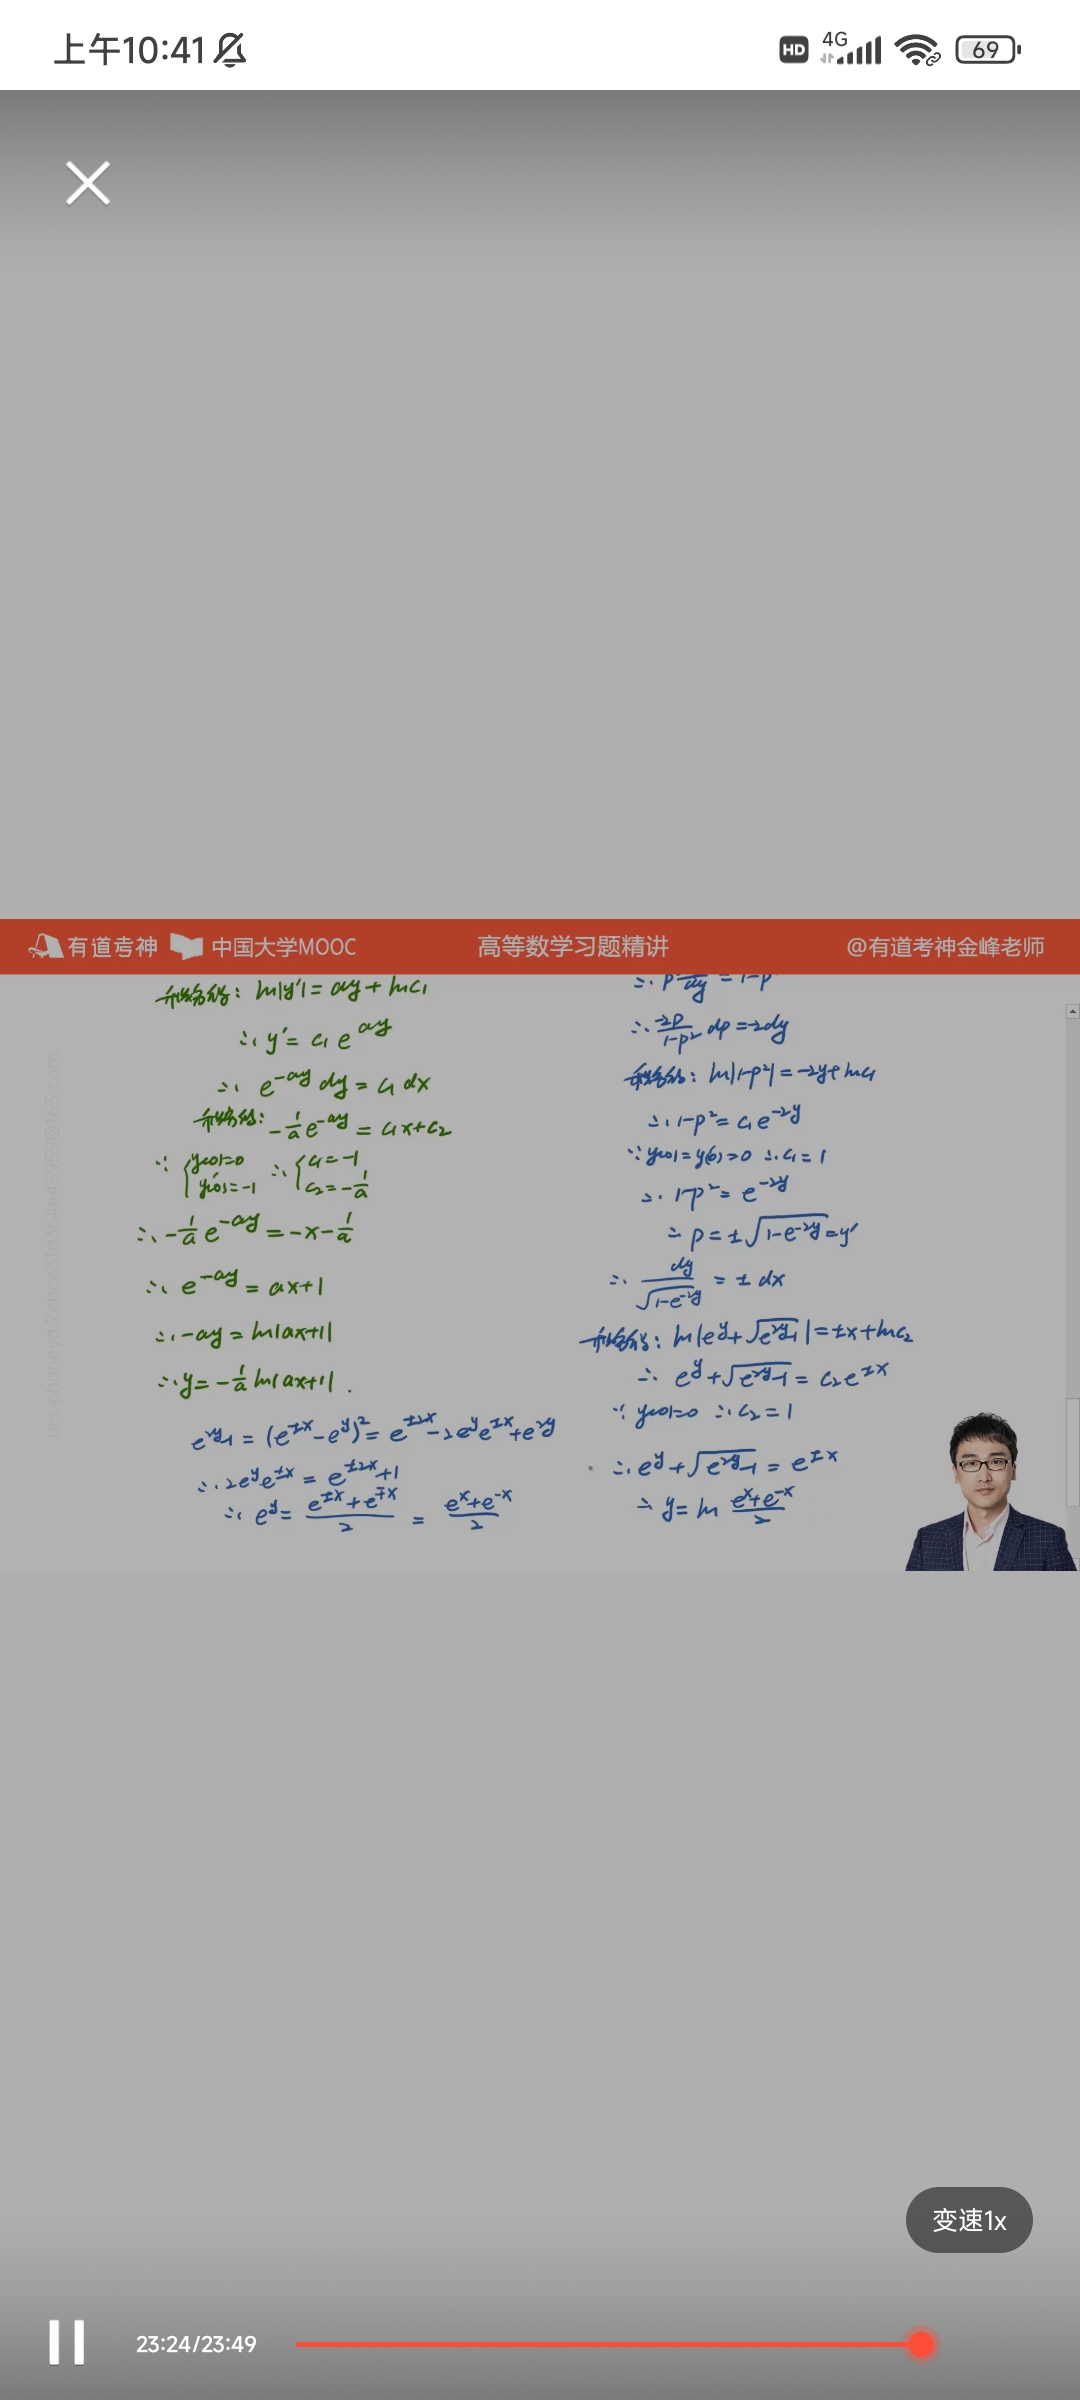 上午10:41
HD 4G 69
有道考神 中国大学MOOC 高等数学习题精讲 @有道考神金峰老师
ln|y'| = ay + lnC₁
∴ y' = C₁ e^{ay}
∴ e^{-ay} dy = C₁ dx
-1/a e^{-ay} = C₁x + C₂
∵ { y(0)=0 y'(0)=-1 ∴ { C₁=-1 C₂=-1/a
∴ -1/a e^{-ay} = -x - 1/a
∴ e^{-ay} = ax+1
∴ -ay = ln|ax+1|
∴ y = -1/a ln|ax+1| .
e^{2y}-1 = (e^{±x} - e^y)² = e^{±2x} - 2e^y e^{±x} + e^{2y}
∴ 2e^y e^{±x} = e^{±2x} + 1
∴ e^y = (e^{±x} + e^{∓x})/2 = (e^x + e^{-x})/2
∴ p dp/dy = 1-p²
∴ -2p/(1-p²) dp = -2dy
ln|1-p²| = -2y + lnC₁
∴ 1-p² = C₁e^{-2y}
∵ y(0) = y'(0) = 0 ∴ C₁ = 1
∴ 1-p² = e^{-2y}
∴ p = ±√(1-e^{-2y}) = y'
∴ dy/√(1-e^{-2y}) = ± dx
ln|e^y + √(e^{2y}-1)| = ±x + lnC₂
∴ e^y + √(e^{2y}-1) = C₂e^{±x}
∵ y(0)=0 ∴ C₂ = 1
∴ e^y + √(e^{2y}-1) = e^{±x}
∴ y = ln (e^x + e^{-x})/2
变速1x
23:24/23:49